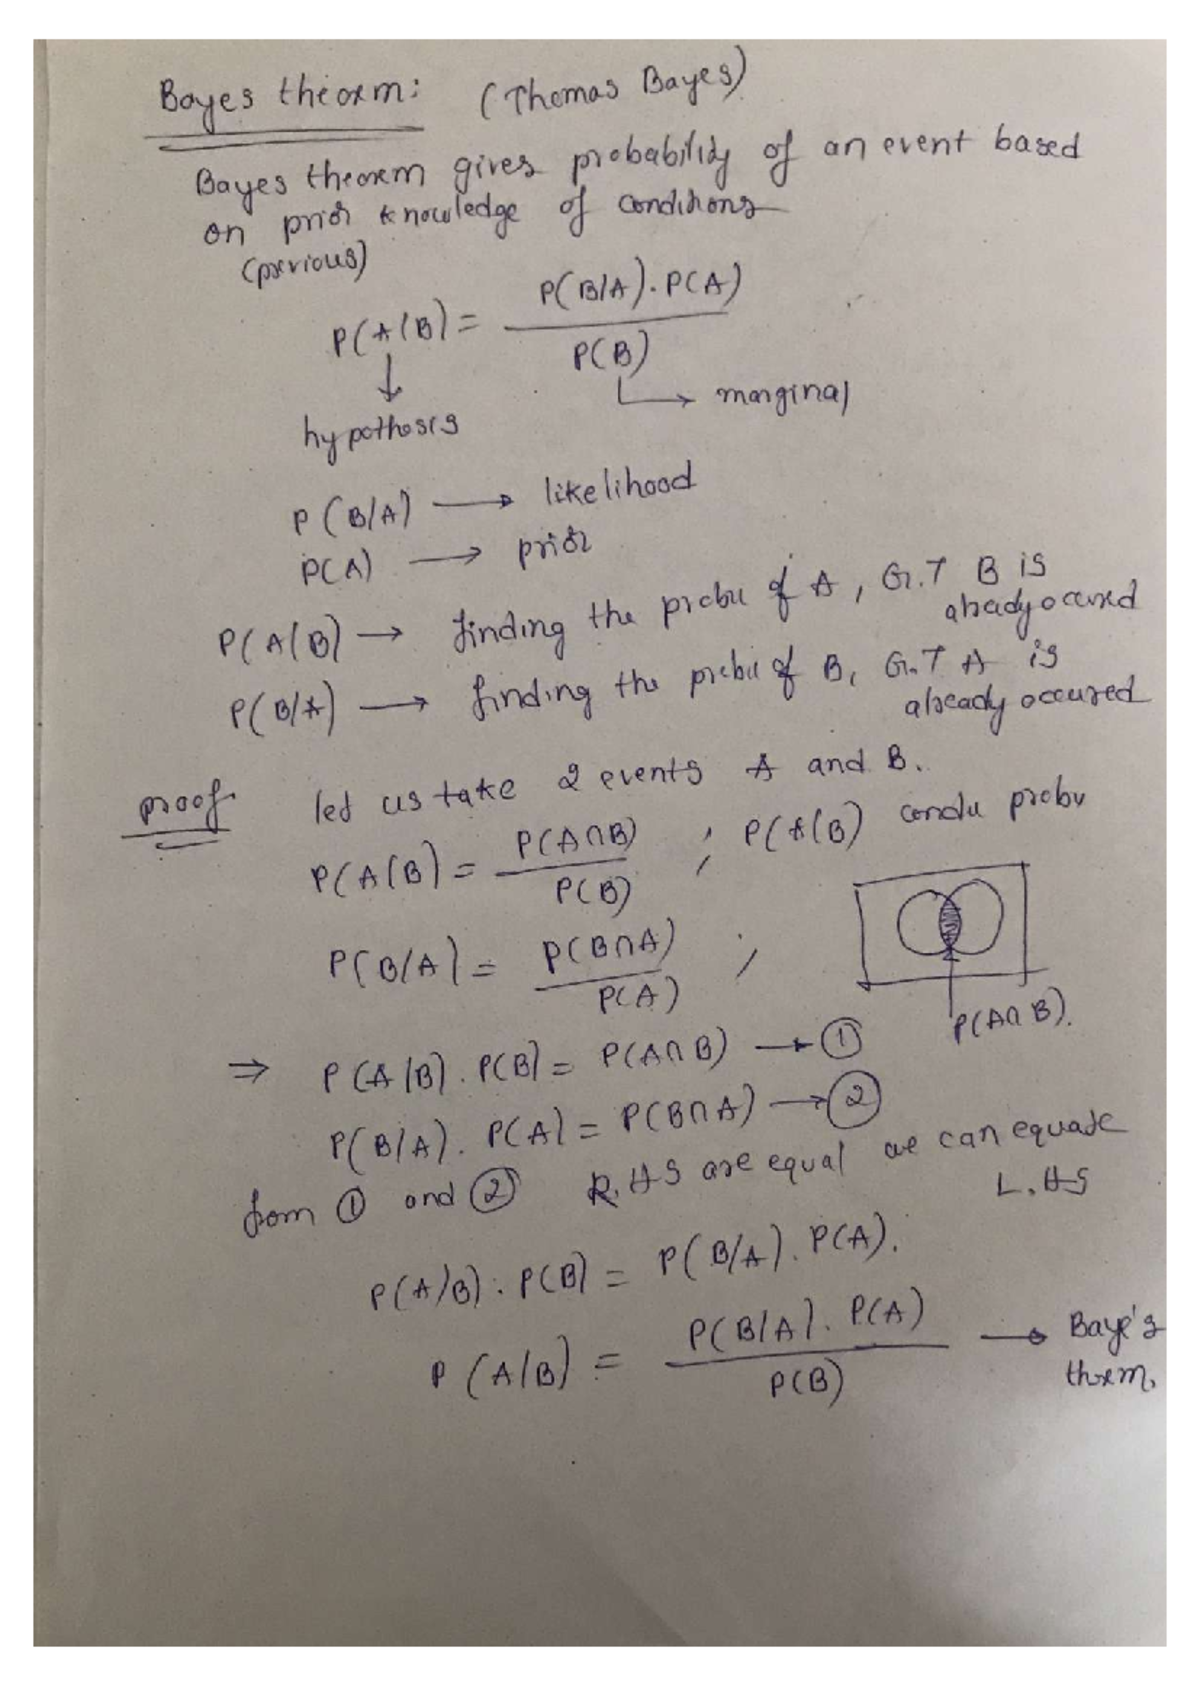 Bayes theorm: (Thomas Bayes)
Bayes theorem gives probability of an event based
on prior knowledge of conditions
(previous)
P(A/B) = P(B/A). P(A) / P(B)
↓ ↳ marginal
hypothesis
P(B/A) → likelihood
P(A) → prior
P(A/B) → finding the probu of A, G.T B is
already occured
P(B/A) → finding the probu of B, G.T A is
already occured
proof let us take 2 events A and B.
P(A/B) = P(A∩B) / P(B) ; P(A/B) condu probu
P(B/A) = P(B∩A) / P(A) ;
P(A∩B).
⇒ P(A/B). P(B) = P(A∩B) → ①
P(B/A). P(A) = P(B∩A) → ②
from ① and ② R.H.S are equal we can equate
L.H.S
P(A/B). P(B) = P(B/A). P(A).
P(A/B) = P(B/A). P(A) / P(B) → Baye's
thorm.